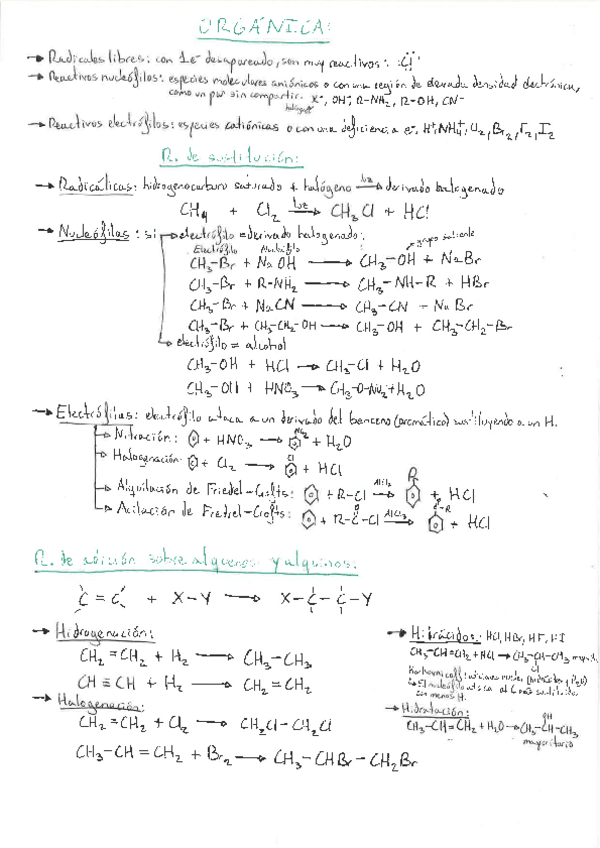 ORGÁNICA:
→ Radicales libres: con 1e⁻ desapareado, son muy reactivos: :Cl·
→ Reactivos nucleófilos: especies moleculares aniónicas o con una región de elevada densidad electrónica,
como un par sin compartir. X⁻, OH⁻, R-NH₂, R-OH, CN⁻
halógeno
→ Reactivos electrófilos: especies catiónicas o con una deficiencia e⁻. H⁺, NH₄⁺, Cl₂, Br₂, F₂, I₂
R. de sustitución:
→ Radicálicas: hidrogenocarburo saturado + halógeno luz→ derivado halogenado
CH₄ + Cl₂ luz→ CH₃Cl + HCl
→ Nucleófilas: si → electrófilo = derivado halogenado:
Electrófilo Nucleófilo grupo saliente
CH₃-Br + NaOH → CH₃-OH + NaBr
CH₃-Br + R-NH₂ → CH₃-NH-R + HBr
CH₃-Br + NaCN → CH₃-CN + NaBr
CH₃-Br + CH₃-CH₂-OH → CH₃-OH + CH₃-CH₂-Br
→ electrófilo = alcohol
CH₃-OH + HCl → CH₃-Cl + H₂O
CH₃-OH + HNO₃ → CH₃-O-NO₂ + H₂O
→ Electrófilas: electrófilo ataca a un derivado del benceno (aromático) sustituyendo a un H.
→ Nitración: + HNO₃ → NO₂ + H₂O
→ Halogenación: + Cl₂ → Cl + HCl
→ Alquilación de Friedel-Crafts: + R-Cl AlCl₃→ R + HCl
→ Acilación de Friedel-Crafts: + R-C(=O)-Cl AlCl₃→ C(=O)-R + HCl
R. de adición sobre alquenos y alquinos:
C=C + X-Y → X-C-C-Y
→ Hidrogenación:
CH₂=CH₂ + H₂ → CH₃-CH₃
CH≡CH + H₂ → CH₂=CH₂
→ Halogenación:
CH₂=CH₂ + Cl₂ → CH₂Cl-CH₂Cl
CH₃-CH=CH₂ + Br₂ → CH₃-CHBr-CH₂Br
→ Hidrácidos: HCl, HBr, HF, HI
CH₃-CH=CH₂ + HCl → CH₃-CH-CH₃
Cl
Markovnikoff: (hidrácidos y H₂O)
↳ El nucleófilo ataca al C más sustituido
con menos H.
→ Hidratación:
OH
CH₃-CH=CH₂ + H₂O → CH₃-CH-CH₃
mayoritario